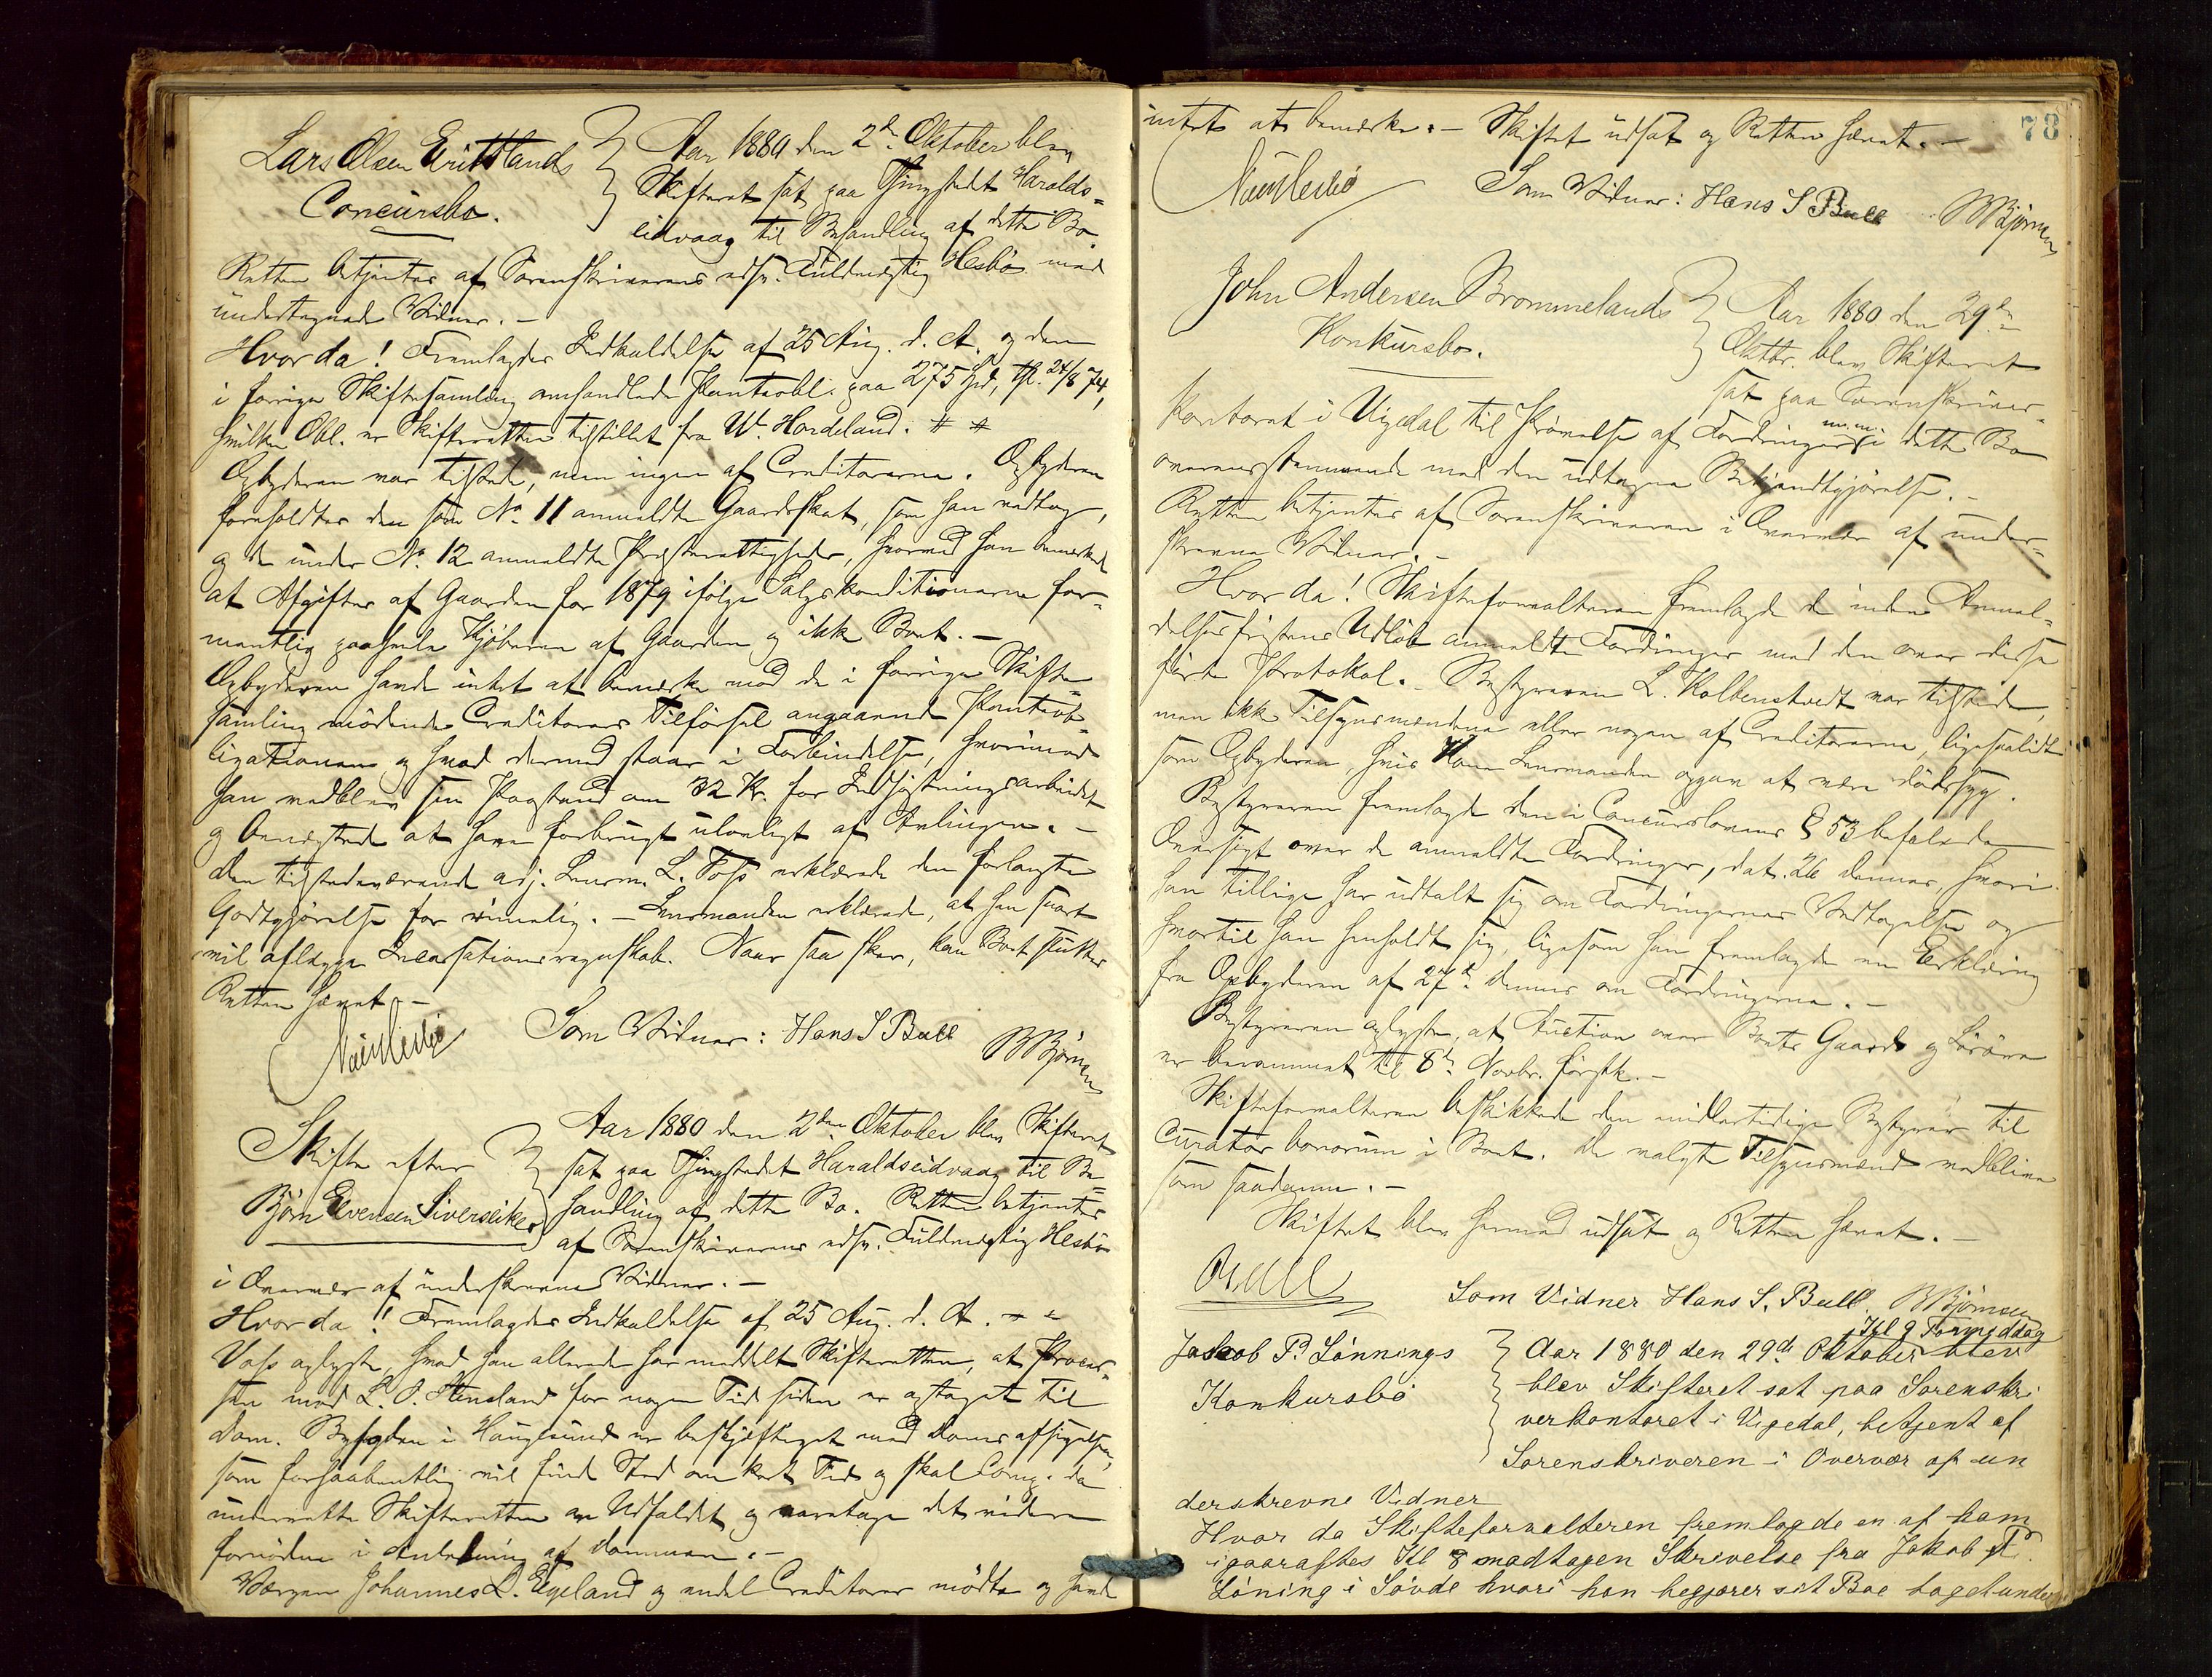 Lars Olsen Erittlands
Concursbo.
Aar 1880 den 2d. Oktober blev
Skifteret sat paa Thingstedet Haralds=
eidvaag til Behandling af dette Bo.
Retten betjentes af Sorenskriverens edsv. Fuldmægtig Hesbø med
undertegnede Vidner. –
Hvor da! Fremlagdes Indkaldelse af 25 Aug. d. A. og den
i forrige Skiftesamling omhandlede Panteobl. paa 275 Spd, thl. 24/8 74,
hvilken Obl. er Skifteretten tilstillet fra W. Hordeland.
Opbyderen var tilstede, men ingen af Creditorerne. Opbyderen
foreholdtes den som No 11 anmeldte Gaardsskat, som han vedtog,
og de under No. 12 anmeldte Præsterettigheder, hvorved han bemærkede
at Afgifter af Gaarden for 1879 ifølge Salgskonditionerne for=
mentlig paahvile Kjøberen af Gaarden og ikke Boet. –
Opbyderen havde intet at bemærke mod de i forrige Skifte=
samling mødende Creditorers Tilførsel angaaende Panteob=
ligationen og hvad dermed staar i Forbindelse, hvorimod
han vedblev sin Paastand om 32 Kr. for Indhøstningsarbeidet
og benægtede at have forbrugt ulovligt af Avlingen. –
Den tilstedeværende adj. Lensm. L. Foss erklærede den forlangte
Godtgjørelse for rimelig. – Lensmanden erklærede, at han snart
vil aflægge Incassationsregnskab. Naar saa sker, kan Boet sluttes
Retten hævet. –
Som Vidner: Hans S Bull BBjørnsen
Skifte efter
Bjørn Evensen Siverseikes
Aar 1880 den 2den Oktober blev Skifteret
sat paa Thingstedet Haraldseidvaag til Be=
handling af dette Bo. Retten betjentes
af Sorenskriverens edsv. Fuldmægtig Hesbø
i Overvær af underskrevne Vidner. –
Hvor da! Fremlagdes Indkaldelse af 25 Aug. d. A.
Voss oplyste, hvad han allerede har meddelt Skifteretten, at Proces=
sen mod L. O. Stensland for nogen Tid siden er optaget til
Dom. Byfogden i Haugesund er beskjæftiget med Doms afsigelse,
som forhaabentlig vil finde Sted om kort Tid og skal Comp. da
underrette Skifteretten om Udfaldet og varetage det videre
fornødne i Anledning af Dommen. –
Værgen Johannes L. Egeland og endel Creditorer mødte og havde
78
intet at bemærke. – Skiftet udsat og Retten hævet. –
Som Vidner: Hans S Bull BBjørnsen
John Andersen Brommelands
Konkursbo.
Aar 1880 den 29de
Oktbr. blev Skifteret
sat paa Sorenskriver=
kontoret i Vigedal til Prøvelse af Fordringer m.m. i dette Bo
overensstemmende med den udtagne Bekjendtgjørelse. –
Retten betjentes af Sorenskriveren i Overvær af under=
skrevne Vidner. –
Hvor da! Skifteforvalteren fremlagde de inden Anmel=
delsesfristens Udløb anmeldte Fordringer med den over disse
førte Protokol. – Bestyreren L. Kolbenstvedt var tilstede,
men ikke Tilsynsmændene eller nogen af Creditorerne, ligesaalidt
som Opbyderen, hvis Kone Lensmanden opgav at være dødssyg.
Bestyreren fremlagde den i Concurslovens § 53 befalede
Oversigt over de anmeldte Fordringer, dat. 26 dennes, hvori
han tillige har udtalt sig om Fordringernes Vedtagelse og
hvortil han henholdt sig, ligesom han fremlagde en Erklæring
fra Opbyderen af 27d. dennes om Fordringerne. –
Bestyreren oplyste, at Auction over Boets Gaard og Løsøre
er berammet til 8d. Novbr. førstk. –
Skifteforvalteren beskikkede den midlertidige Bestyrer til
Curator bonorum i Boet. De valgte Tilsynsmænd vedblive
som saadanne. –
Skiftet blev hermed udsat og Retten hævet. –
Som Vidner Hans S. Bull. BBjørnsen
Jaskob P. Lønnings
Konkursbo
Kl 9 Formiddag
Aar 1880 den 29de Oktober blev
blev Skifteret sat paa Sorenskri
verkontoret i Vigedal, betjent af
Sorenskriveren i Overvær af un
derskrevne Vidner
Hvor da Skifteforvalteren fremlagde en af ham
igaaraftes Kl 8 modtagen Skrivelse fra Jakob P.
Løning i Søvde hvori han begjærer sit Boe taget under